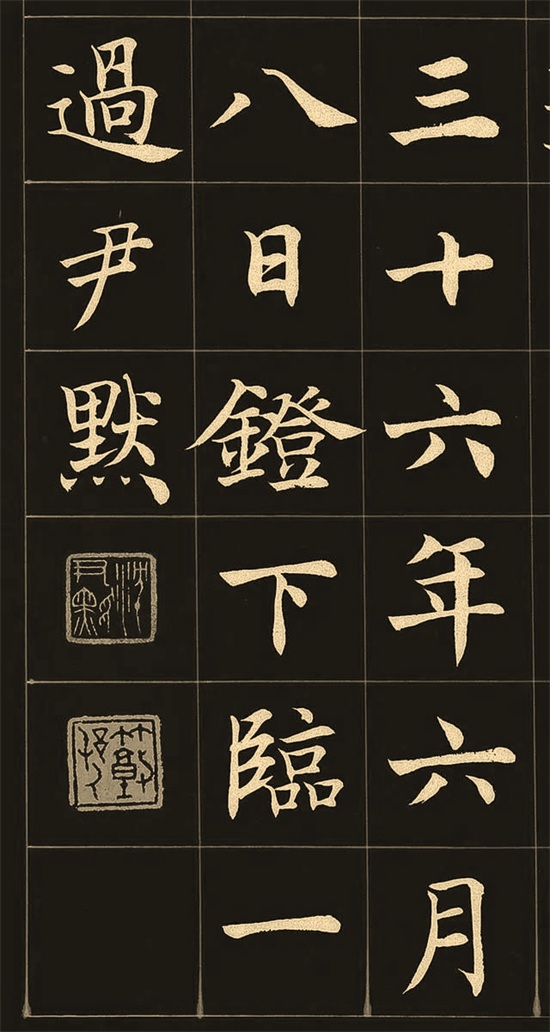 三十六年六月
八日鐙下臨一
過尹默
沈尹默